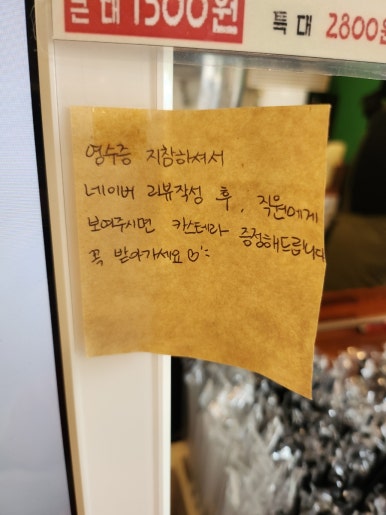 큰 대 1500원
특 대 2800원
영수증 지참하셔서
네이버 리뷰작성 후, 직원에게
보여주시면 카스테라 증정해드립니다
꼭 받아가세요♡